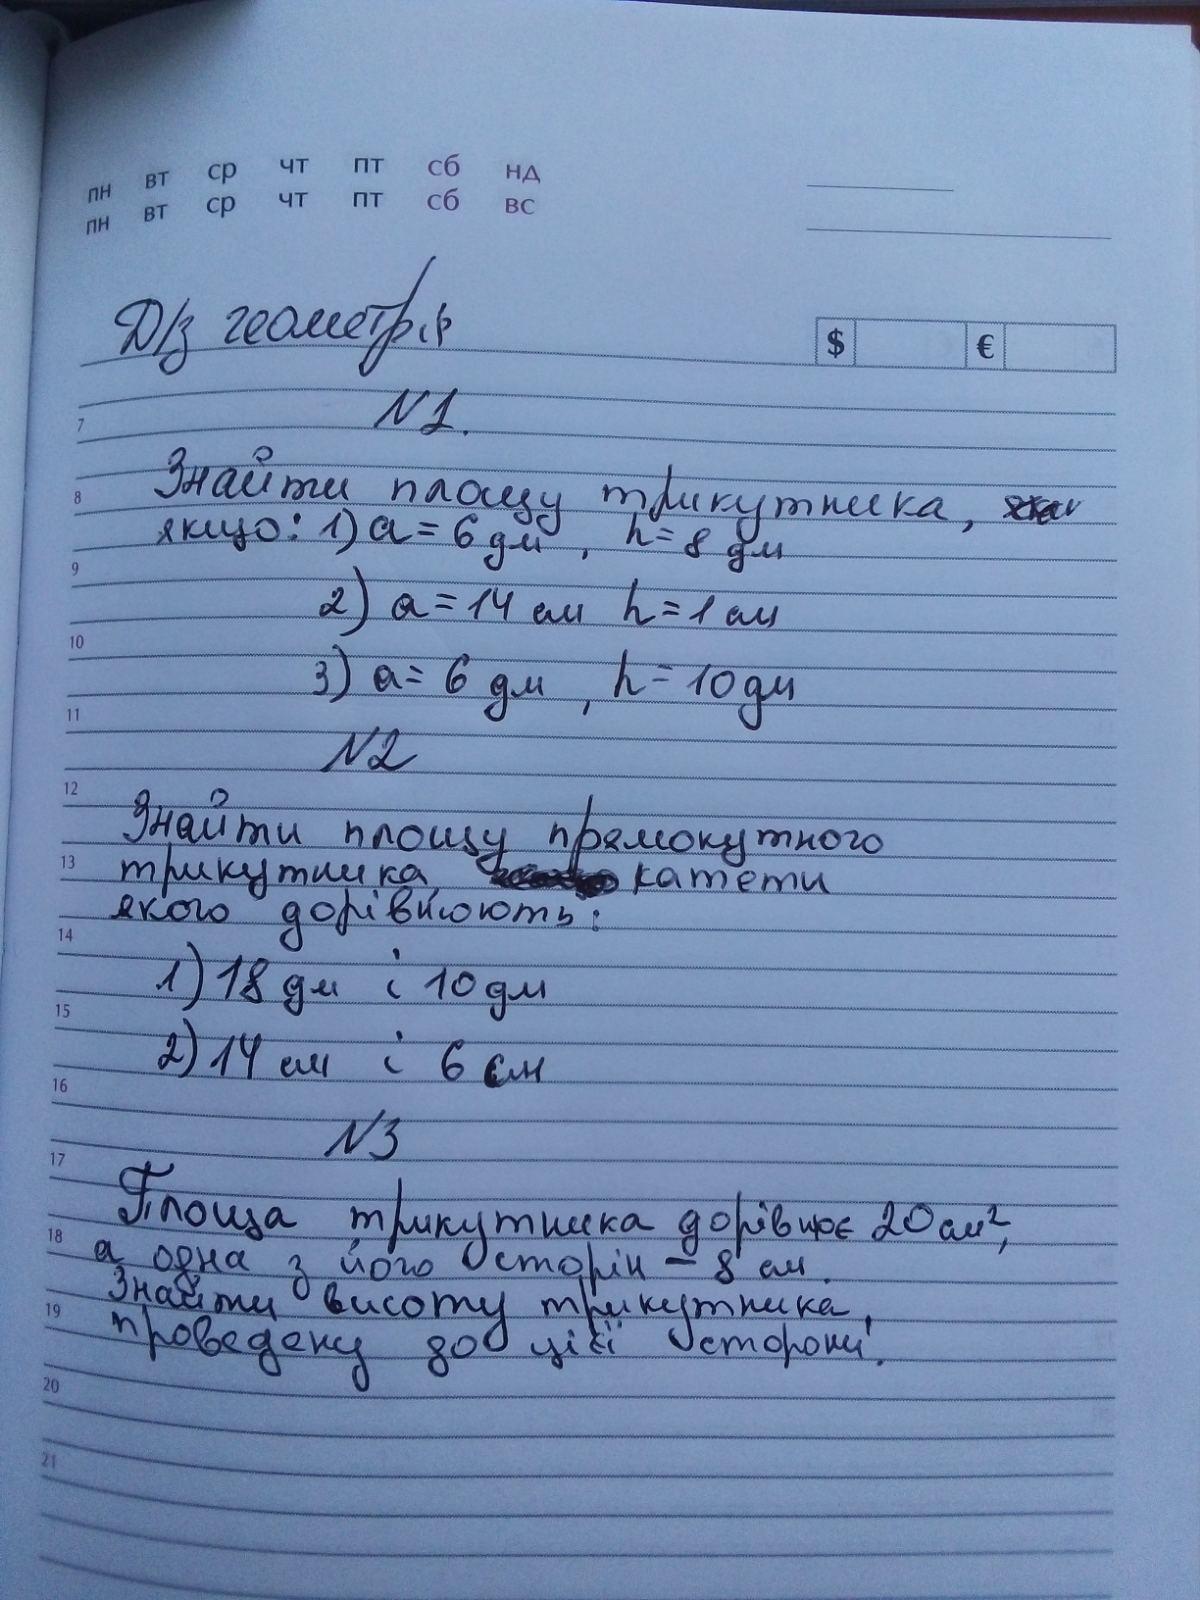 пн вт ср чт пт сб нд
пн вт ср чт пт сб вс
Д/з геометрія
$ €
N1.
7
Знайти площу трикутника,
8
якщо: 1) a = 6 дм, h = 8 дм
9
2) a = 14 см h = 1 см
10
3) a = 6 дм, h = 10 дм
11
N2
12
Знайти площу прямокутного
13
трикутника катети
якого дорівнюють:
14
1) 18 дм і 10 дм
15
2) 14 см і 6 см
16
N3
17
Площа трикутника дорівнює 20 см²,
18
а одна з його сторін – 8 см.
Знайти висоту трикутника,
19
проведену до цієї сторони.
20
21